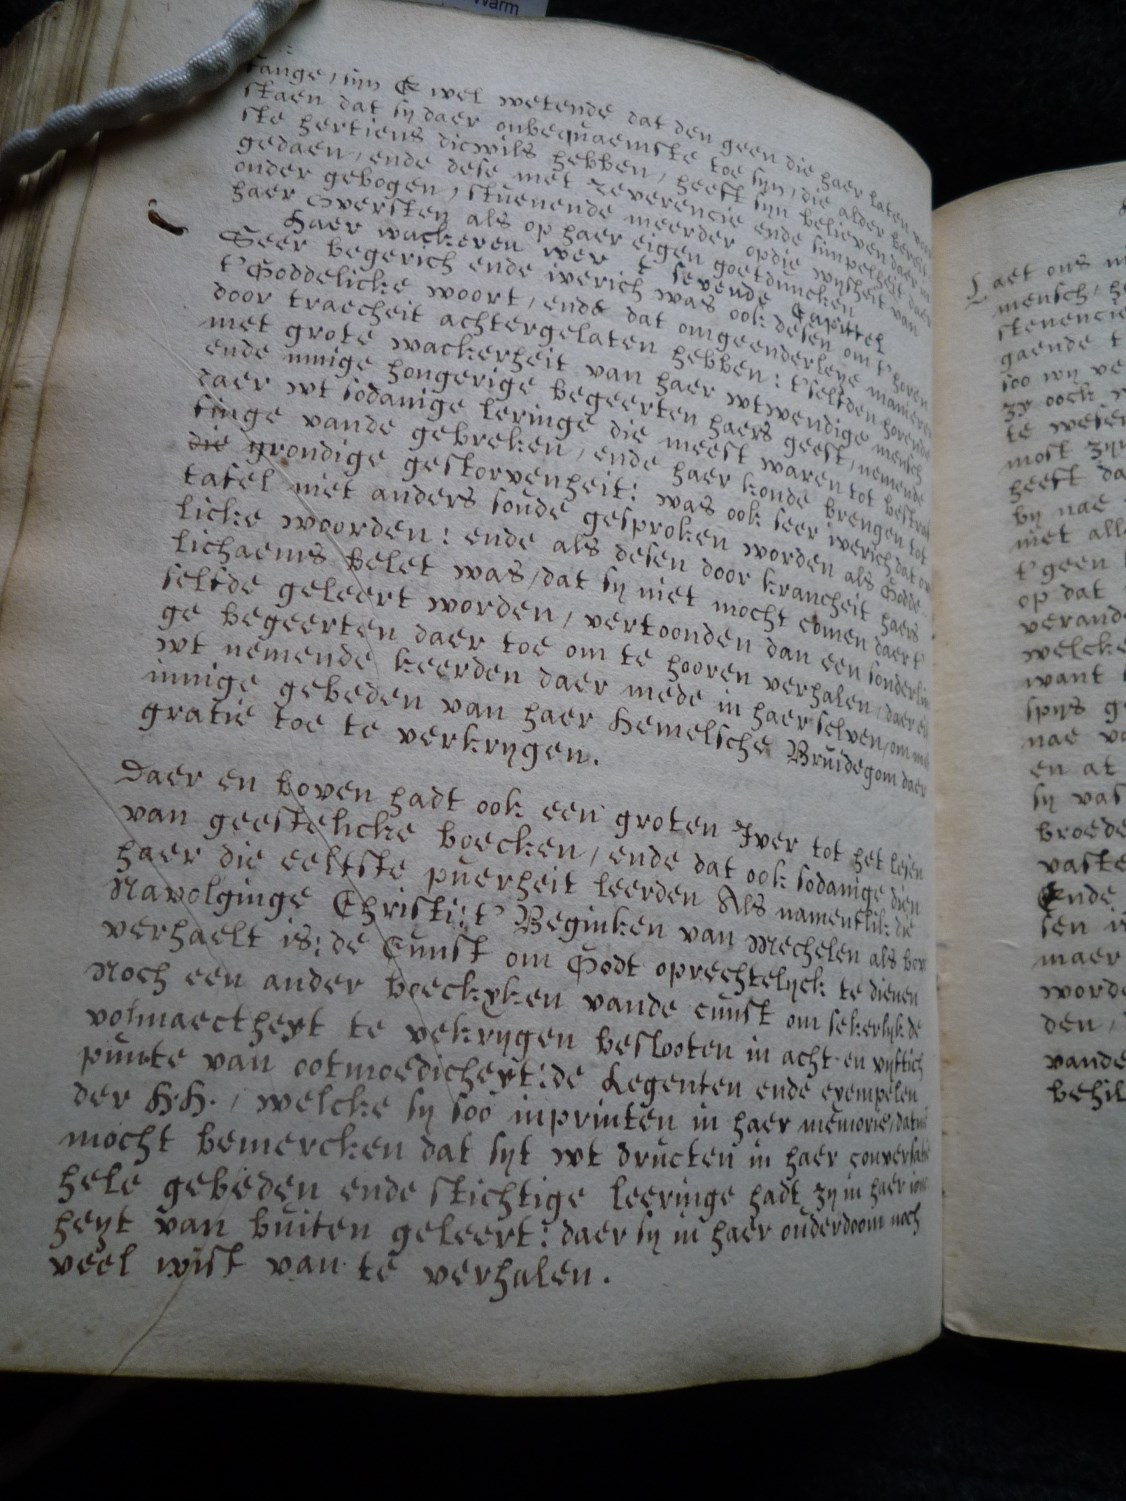 Warm
fange, sijn & wel wetende dat den geen die haer laten van
staen dat sij daer onbequaemste toe sijn, die alder bereit
ste hertiens dicwils hebben, heeft sijn believen daer in
gedaen, ende dese met reverencie ende simpelheit daer
onder gebogen, stuenende meerder op die wijsheit van
haer Oversten als op haer eigen goetduncken
Haer wackeren iver t' sevende Capittel
Seer begerich ende iverich was ook desen om t' horen
t' Goddelicke woort, ende dat omgeenderleye manieren
door traecheit achtergelaten hebben: t' selfden horende
met grote wackerheit van haer wtwendige mensch
ende innige hongerige begeerten haers geest, nemende
daer wt sodanige leringe die meest waren tot bestraf
finge vande gebreken, ende haer konde brengen tot
die grondige gestorvenheit: was ook seer iverich dat on
tafel niet anders soude gesproken worden als Godde
licke woorden: ende als desen door krancheit haers
lichaems belet was, dat sij niet mocht comen daer t'
selfde geleert worden, vertoonden dan een sonderlin
ge begeerten daer toe om te hooren verhalen, daer
wt nemende keerden daer mede in haer selven, om
innige gebeden van haer Hemelsche Bruidegom daer
gratie toe te verkrijgen.
Daer en boven hadt ook een groten Iver tot het lesen
van geestelicke boecken, ende dat ook sodanige dien
haer die eelste puerheit leerden Als namentlik die
Navolginge Christi: t' Beginken van Mechelen als bov
verhaelt is: de Cunst om Godt oprechtelijck te dienen
Noch een ander boeckxken vande cunst om sekerlijk de
volmaectheyt te vekrijgen beslooten in acht en vijftich
punte van ootmoedicheyt: de Legenten ende exempelen
der HH., welcke sij soo inprinten in haer memorie, datm
mocht bemercken dat sijt wt druckten in haer conversatie
hele gebeden ende stichtige leeringe hadt zij in haer ionc
heyt van buiten geleert: daer sij in haer ouderdoom noch
veel wist van te verhalen.
Laet ons
mensch,
stenencie
gaende t
soo wij ve
zy oock
te wesen
most zijn
heeft da
bij nae
niet all
t' geen
op dat
verande
welcke
want
spijs g
nae
en at
sij vas
broede
vaste
Ende
sen
maer
worde
den,
vande
behil